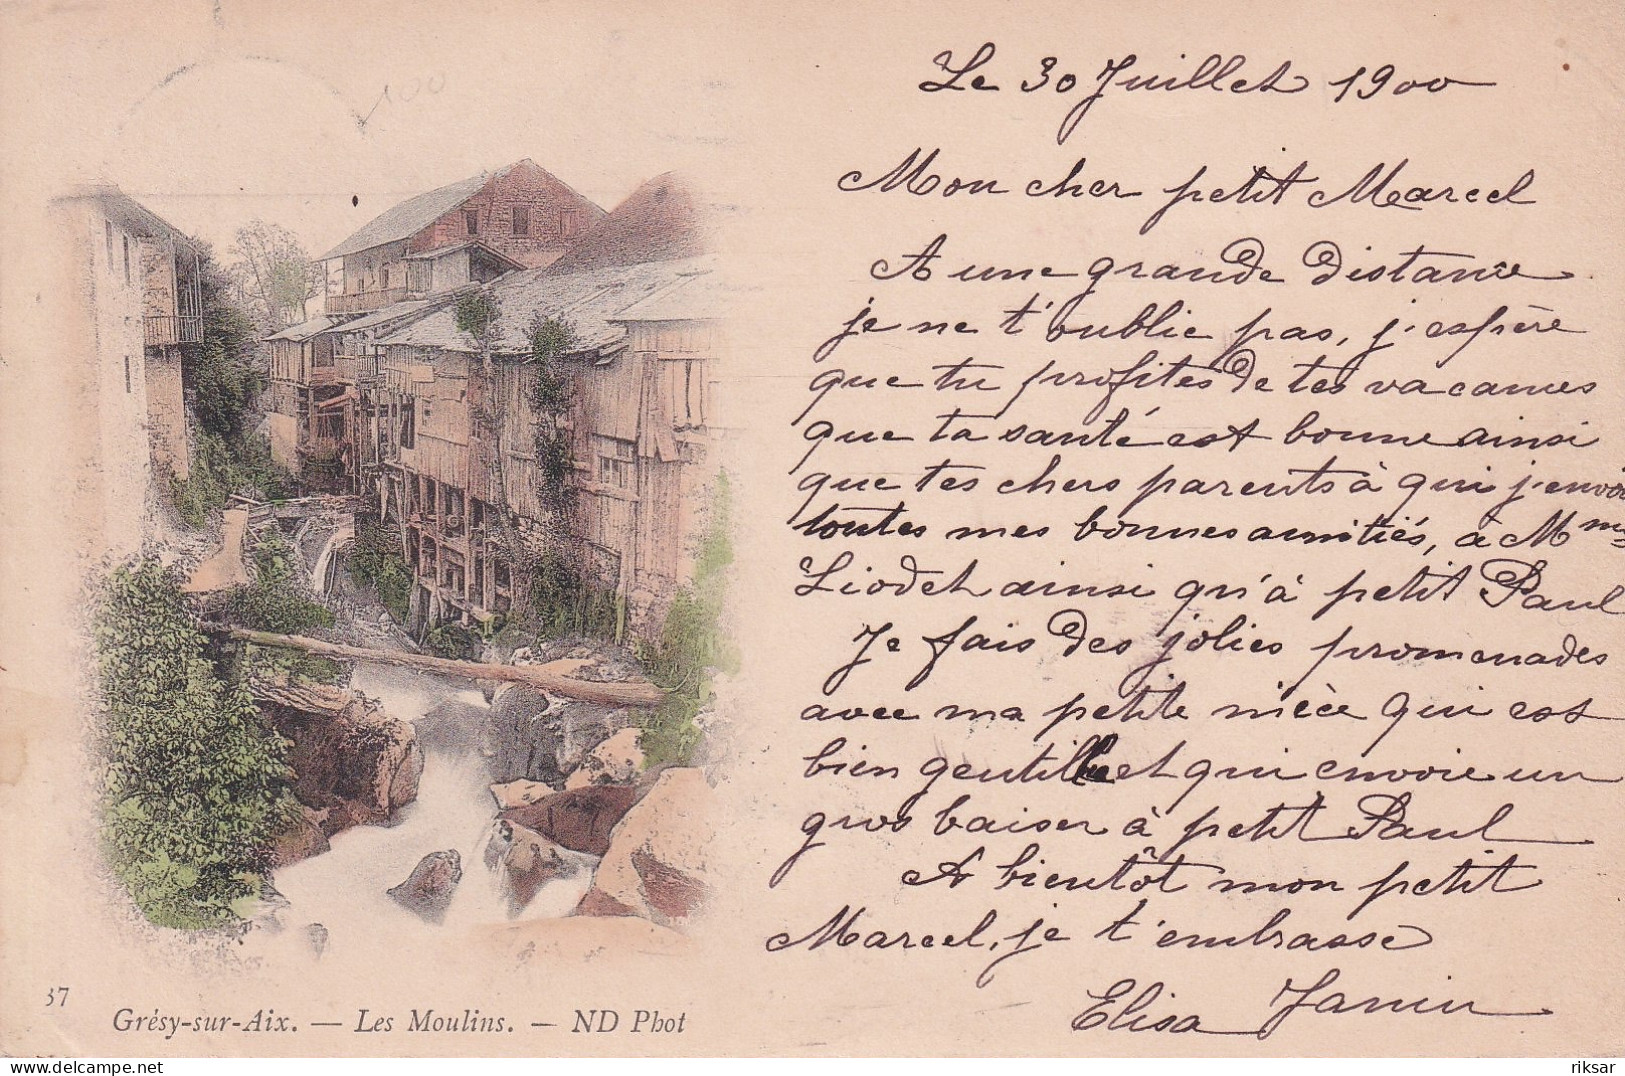 Le 30 Juillet 1900
Mon cher petit Marcel
A une grande distance
je ne t'oublie pas, j'espère
que tu profites de tes vacances
que ta santé est bonne ainsi
que tes chers parents à qui j'envoie
toutes mes bonnes amitiés, à Mme
Liodet ainsi qu'à petit Paul
Je fais des jolies promenades
avec ma petite nièce qui est
bien gentille et qui envoie un
gros baiser à petit Paul
A bientôt mon petit
Marcel, je t'embrasse
Elisa Janin
37
Grésy-sur-Aix. — Les Moulins. — ND Phot
100
riksar